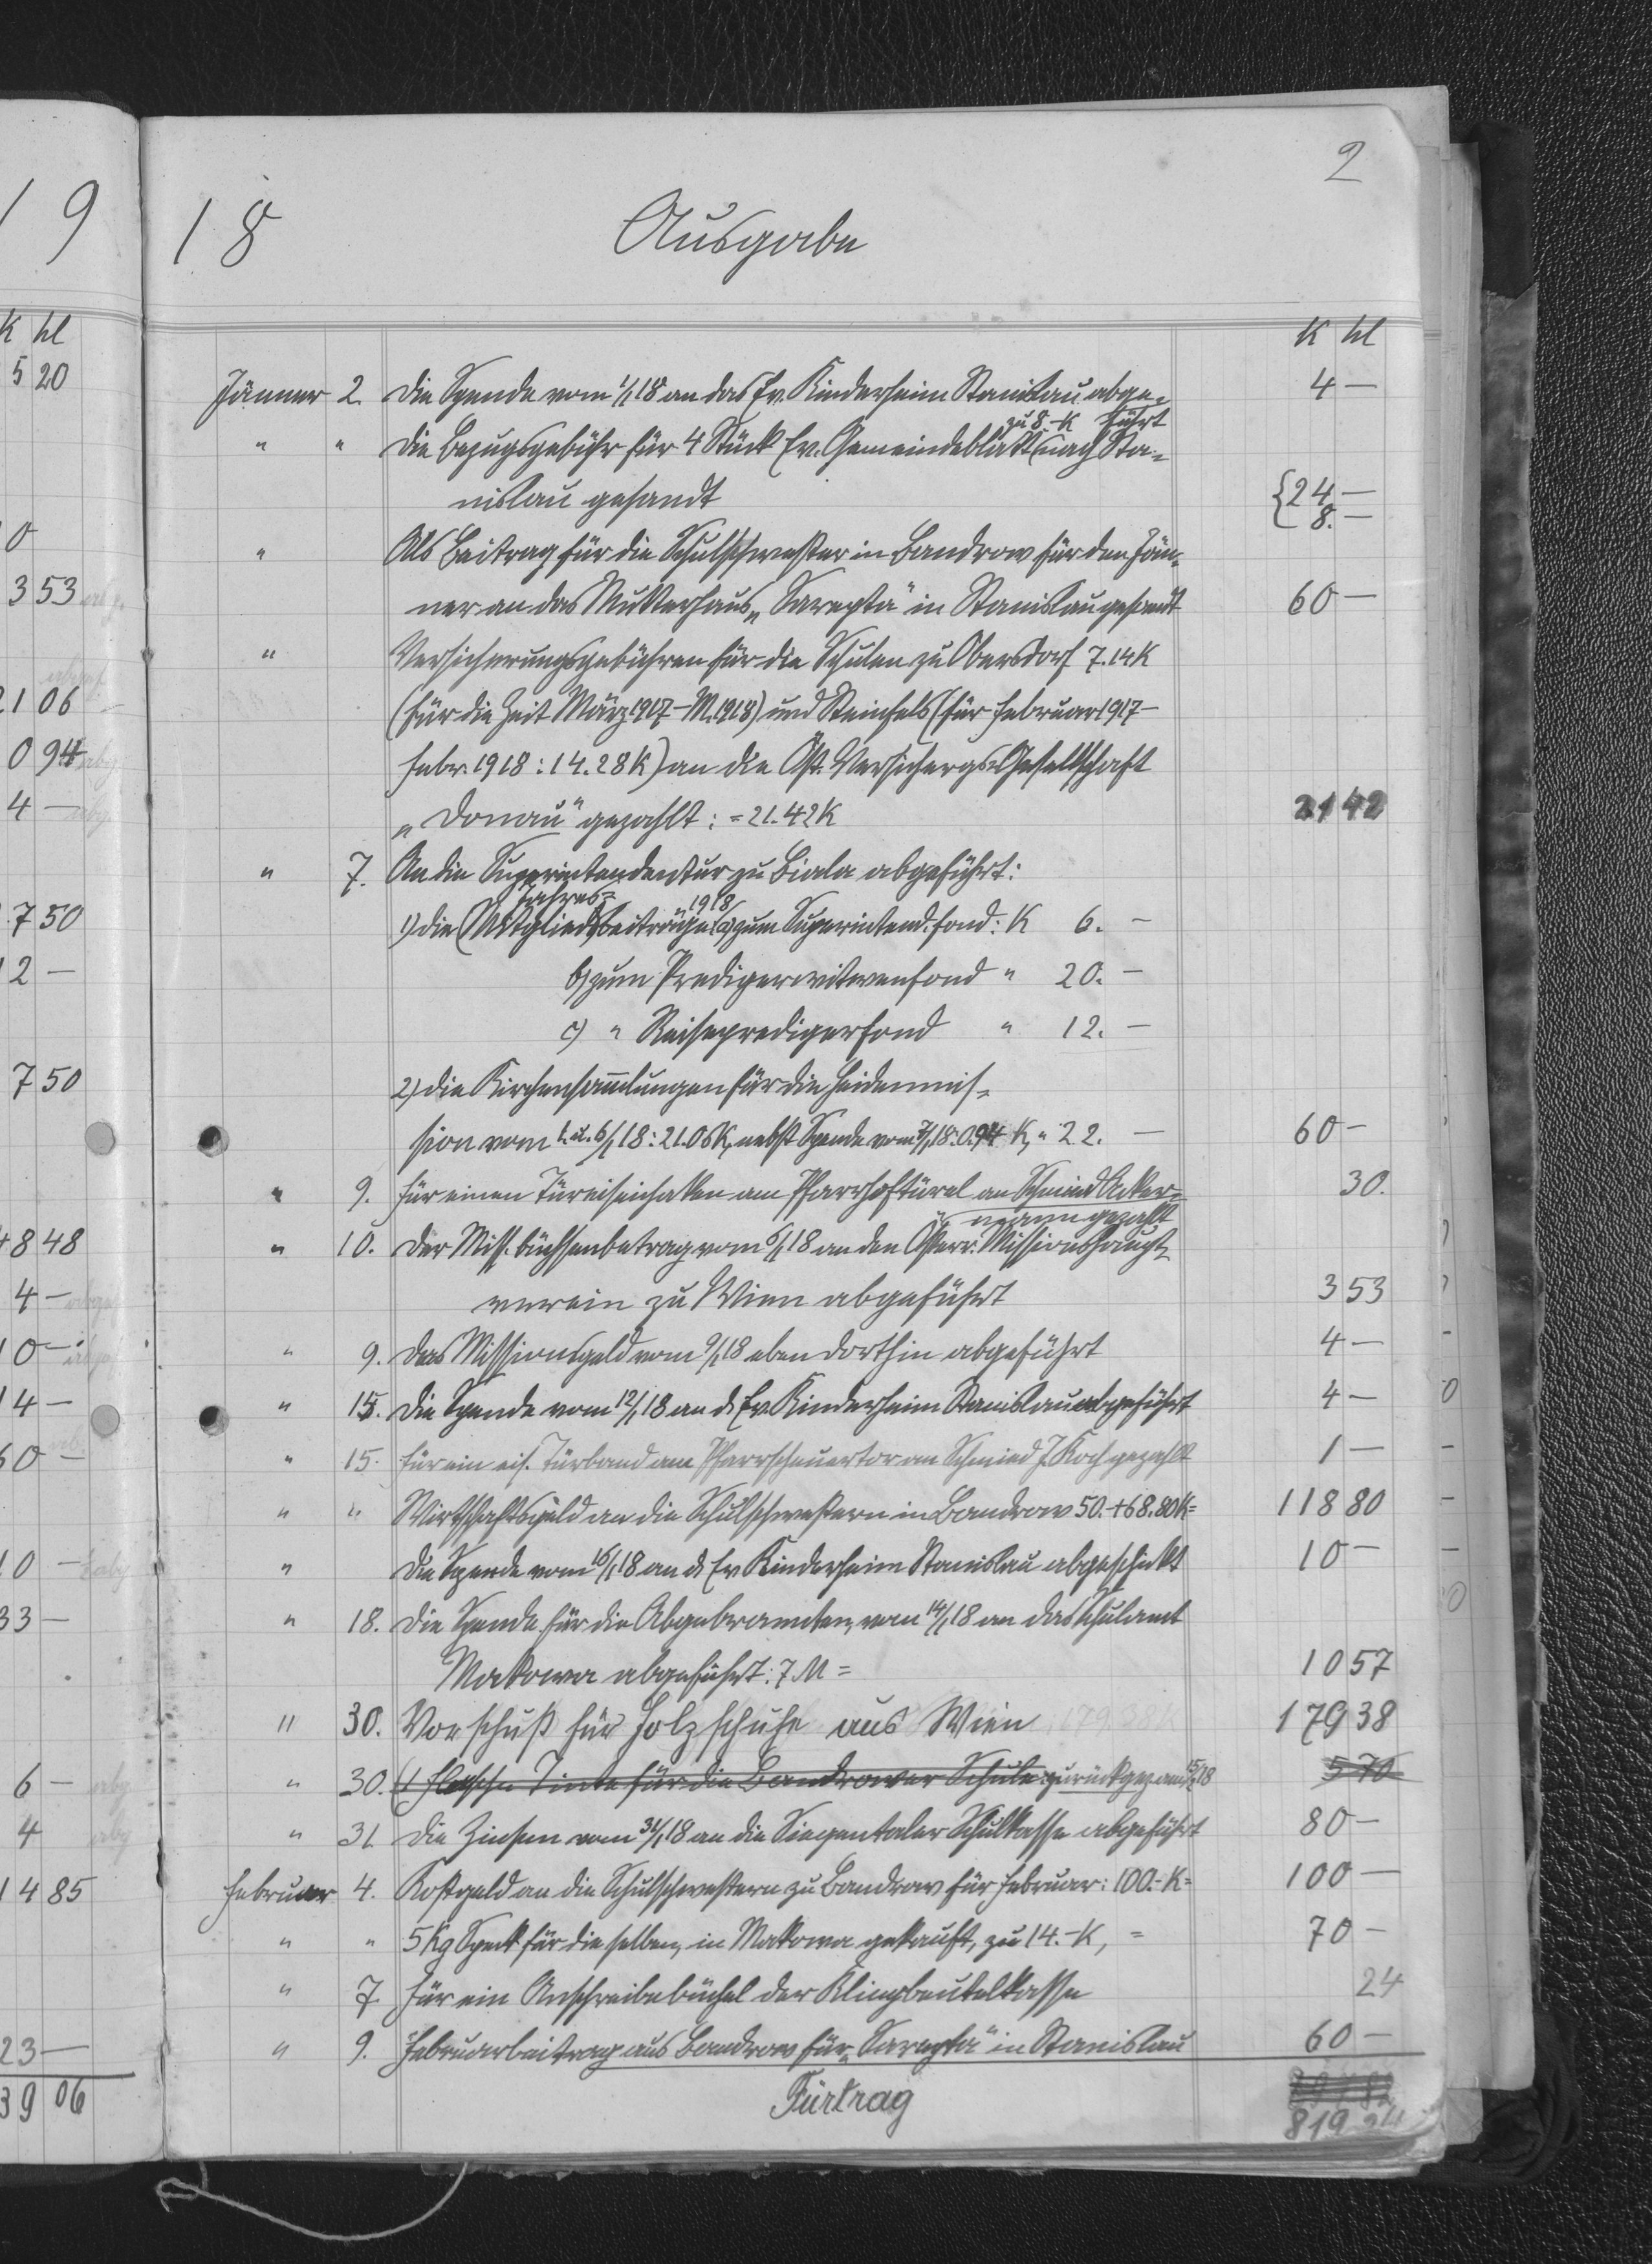 2
19
18
Ausgabe
K hl
K hl
5 20
Jänner 2. Die Spende vom 1/1 18 an das Ev. Kinderheim Stanislau abge= 4 —
führt
zu 8.- K
" " Die Bezugsgebühr für 4 Stück Ev. Gemeindeblatt nach Sta=
nislau gesandt {24 —
8. —
0
" Als Beitrag für die Schulschwester in Bandrow für den Jän=
3 53
ner an das Mutterhaus „Sarepta" in Stanislau gesandt 60 —
" Versicherungsgebühren für die Schulen zu Obersdorf 7.14 K
21 06
(für die Zeit März 1917 – M. 1918) und Steinfels (für Februar 1917 –
0 94
Febr. 1918: 14.28 K) an die Öst. Versichergs-Gesellschaft
4 —
„Donau" gezahlt: = 21.42 K 21 42
" 7. An die Superintendentur zu Biala abgeführt:
Jahres= 1918
7 50
1) die (Mitglieds)beiträge a) zum Superintend. fond: K 6. –
12 —
b) zum Predigerwitwenfond " 20. –
c) " Reisepredigerfond " 12. –
7 50
2) die Kirchensammlungen für die Heidenmis=
sion vom 1. u. 6/1 18: 21.06 K, nebst Spende vom 7/1 18: 0.94 K, " 22. — 60 –
" 9. Für einen Türeiseinhaken am Pfarrhoftürel an Schmied Acker= 30.
mann gezahlt
48 48
" 10. Der Miss. büchsenbetrag vom 6/1 18 an den Österr. Missionshaupt=
4 —
verein zu Wien abgeführt 3 53
10 —
" 9. Das Missionsgeld vom 9/1 18 eben dorthin abgeführt 4 —
14 —
" 15. Die Spende vom 12/1 18 an d. Ev. Kinderheim Stanislau abgeführt 4 —
60 —
" 15. Für ein eis. Türband am Pfarrscheuertor an Schmied J. Koch gezahlt 1 —
" " Wirtschaftsgeld an die Schulschwestern in Bandrow 50. + 68.80 K = 118 80
10 —
" Die Spende vom 16/1 18 an d. Ev. Kinderheim Stanislau abgeschickt 10 —
33 —
" 18. Die Spende für die Abgebrannten, vom 14/1 18 an das Schulamt
Makowa abgeführt: 7 M = 10 57
" 30. Vorschuß für Holzschuhe aus Wien 179 38
6 —
" 30. (1 Flasche Tinte für die Bandrower Schule zurückgez. am 15/2 18 5 70
4
" 31. Die Zinsen vom 31/1 18 an die Siegentaler Schulkasse abgeführt 80 –
14 85
Februar 4. Kostgeld an die Schulschwestern zu Bandrow für Februar: 100.- K = 100 —
" " 5 Kg Speck für dieselben, in Makowa gekauft, zu 14.- K, = 70 –
" 7. Für ein Anschreibebüchel der Klingbeutelkasse 24
23 —
" 9. Februarbeitrag aus Bandrow für „Sarepta" in Stanislau 60 –
39 06
Fürtrag
819 24